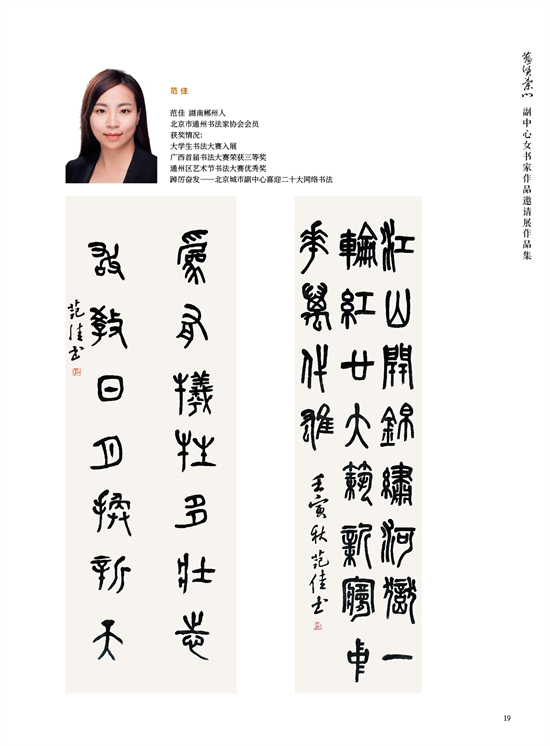 范佳
范佳 湖南郴州人
北京市通州书法家协会会员
获奖情况：
大学生书法大赛入展
广西首届书法大赛荣获三等奖
通州区艺术节书法大赛优秀奖
踔厉奋发——北京城市副中心喜迎二十大网络书法
副中心女书家作品邀请展作品集
江山開錦繡河嶽一
輪紅廿大蓺新寫中
華萬代雄
壬寅秋范佳书
爲有犧牲多壯志
敢教日月換新天
范佳书
19